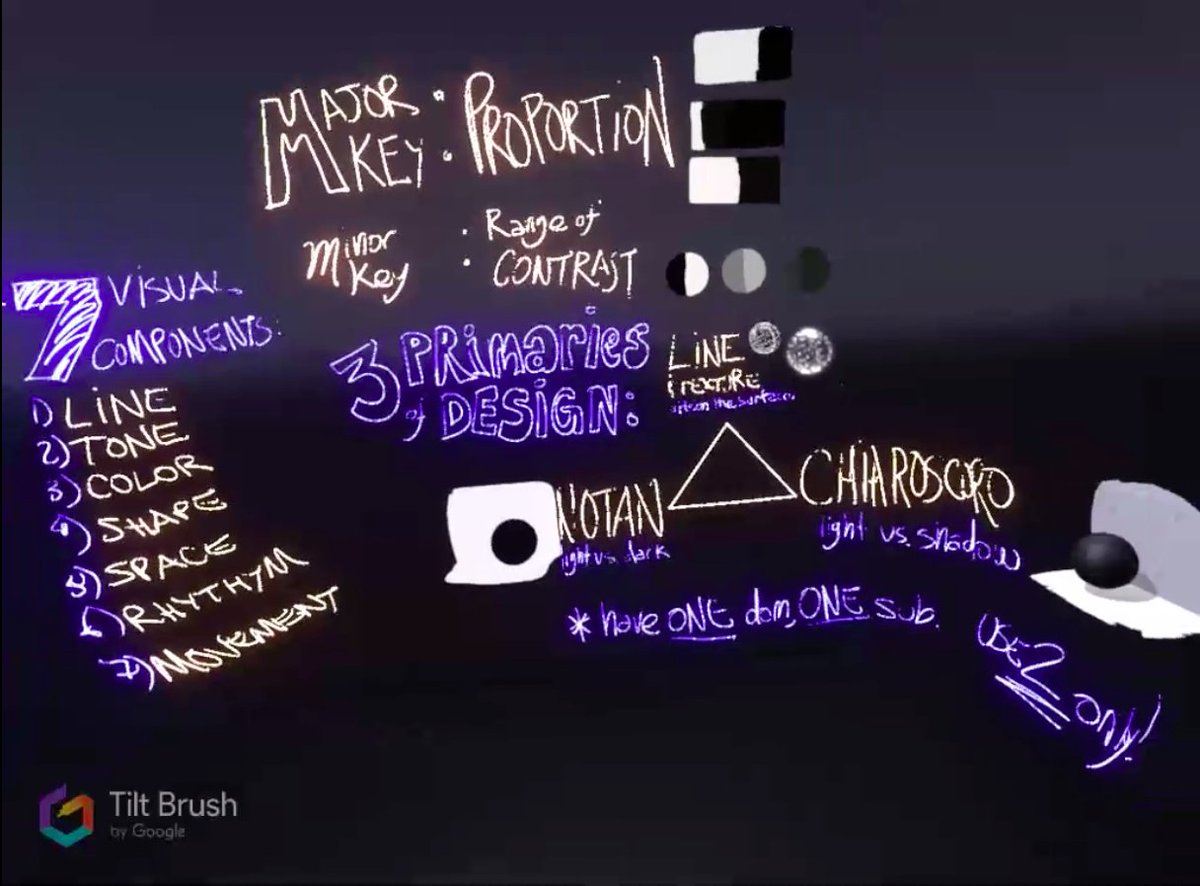 MAJOR KEY : PROPORTION
Minor Key : Range of CONTRAST
7 VISUAL COMPONENTS:
1) LINE
2) TONE
3) COLOR
4) SHAPE
5) SPACE
6) RHYTHYM
7) MOVEMENT
3 PRIMARIES of DESIGN:
LINE
TEXTURE
NOTAN
light vs. dark
CHIAROSCURO
light vs. shadow
* have ONE dom, ONE sub.
USE 2 only!
Tilt Brush
by Google